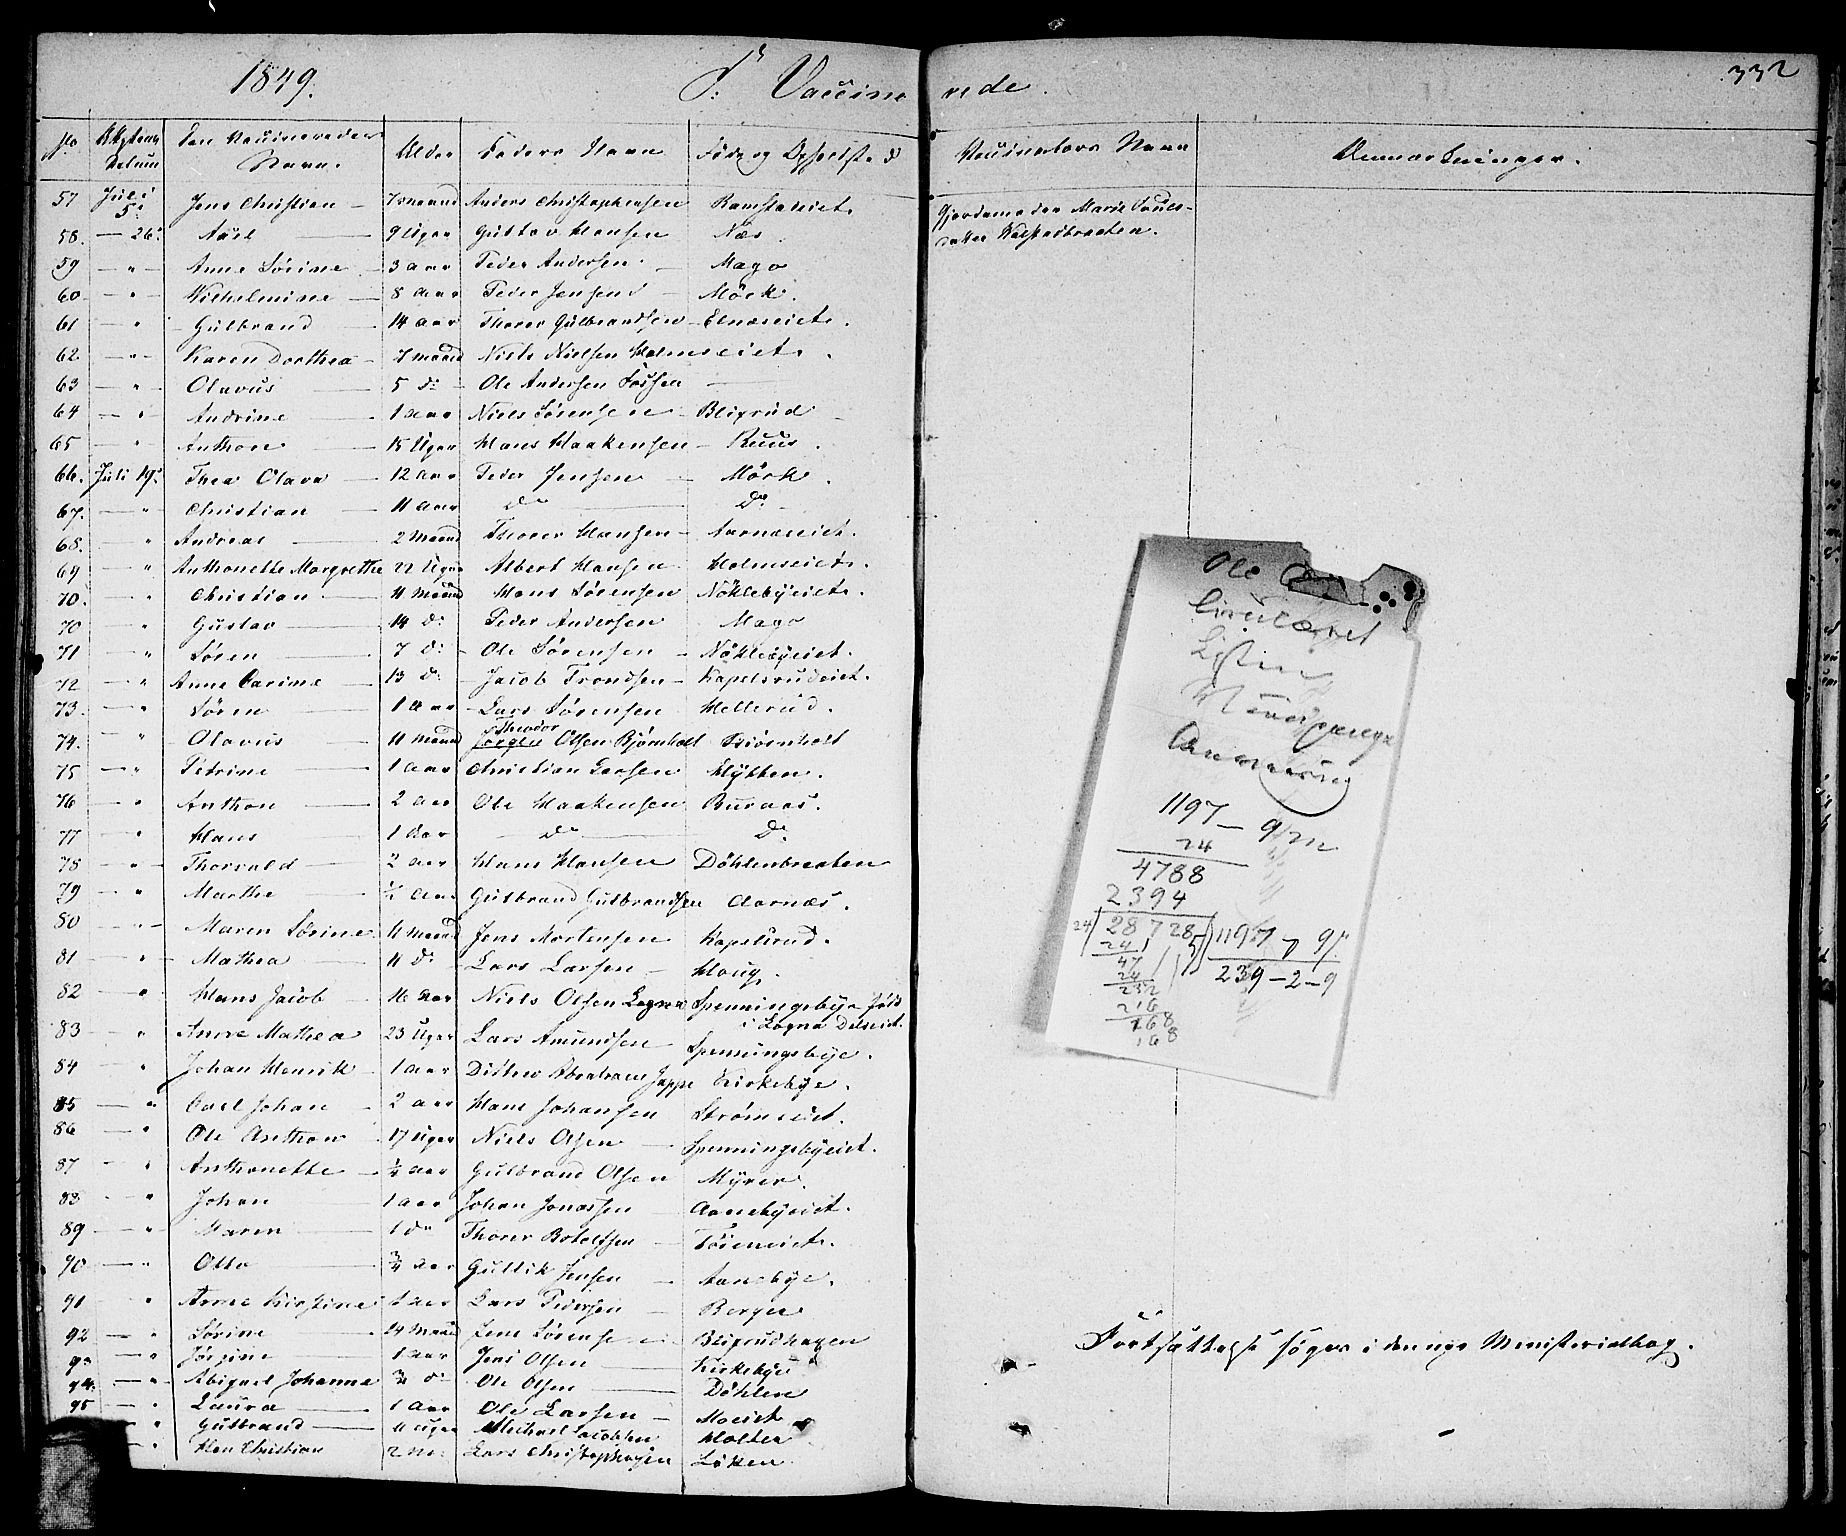 1849.
Vaccine rede.
332
No
Den Vaccineredes Navn.
Alder
Faders Navn
Vaccinateurs Navn
Anmærkninger.
57 Juli 5. Jens Christian 7 maaned Anders Christophersen Ramstadeiet.
Gjordemoder Marie Pouls-
datter
58. — 26. Axel 9 Uger Gustav Hansen Næs.
59 — " — Anne Sørine 3 aar Peder Andersen Mago
60 — " — Wilhelmine 8 aar Peder Jensen Mörk.
61 " Gulbrand 14 aar Thorer Gulbrandsen Elnæseiet.
62. — " — Karen Dorthea 7 maaned Niels Nielsen Holmseiet.
63 — " Olavus 5 do Ole Andersen Fossen
64 — " Andrine 1 aar Niels Sörensen Bligrud
65 — " Anthon 15 Uger Hans Haakensen Ruus.
66. Juli 19. Thea Olava 12 aar Peder Jensen Mörk.
67. — " Christian 11 aar do do
68. — " Andreas 2 maaned Thorer Hansen Aarnæseiet.
69 — " Anthonette Margrethe 22 Uger Albert Hansen Holmseiet.
70. — " Christian 11 maaned Hans Sørensen Nöklebyeiet.
70 — " Gustav 14 do Peder Andersen Mago
71 — " Sören 7 do Ole Sørensen Nöklebyeiet.
72 — " Anne Carine 13 do Jacob Trondsen Kapelsrudeiet.
73. — " Sören 1 aar Lars Sørensen Hellerud.
Theodor
74. — " Olavus 11 maaned Jörgen Olsen Bjørnholt Biörnholt
75 — " Petrine 1 aar Christian Larsen Hytten.
76 — " Anthon 2 aar Ole Haakensen Buraas.
77 — " Hans 1 aar do do
78 — " Thorvald 2 aar Hans Hansen Döhlenbraaten
79 — " Marthe ½ aar Gulbrand Gulbrandsen Aarnæs.
80 — " — Maren Sörine 11 maaned Jens Mortensen Kapelsrud.
81 — " Mathea 11 do Lars Larsen Haug.
82 — " Hans Jacob 16 aar Niels Olsen Spenningsbye född
i
83 — " Anne Mathea 23 Uger Lars Amundsen Spenningsbye.
84 — " Johan Henrik 1 aar Ditlew Abraham Jappe Kirkebye.
85 — " Carl Johan 2 aar Hans Johansen Strömeiet.
86 — " Ole Anthon 17 Uger Niels Olsen Spenningsbyeiet.
87 — " Anthonette ¼ aar Gulbrand Olsen Myrer.
88 — " Johan 1 aar Johan Jonassen Aanebyeiet.
89 — " Maren 1 do Thorer Botolfsen
90 — " Otto ¾ aar Gullik Jensen Aanebye.
91 " Anne Kirstine 1 aar Lars Pedersen Berger
92 — " Sörine 14 maaned Jens Sörensen Bligrudhagen
93 — " Jörgine 1 aar Jens Olsen Kirkebye
94. — " Abiguel Johanne ¾ do Ole Olsen Döhlen
95 — " Laura 1 aar Ole Larsen Moeiet
" Gulbrand 11 Uger Michael Jacobsen Holter
" Hans Christian 2 Lars Christophersen Löken
Ole
Circulæret
Listen
1197 — 9
24
4788
2394
24 28728 5 1197 — 9
24
239 — 2 — 9
47
24
232
216
168
168
Fortsættelse söges i den nye Ministerialbog.